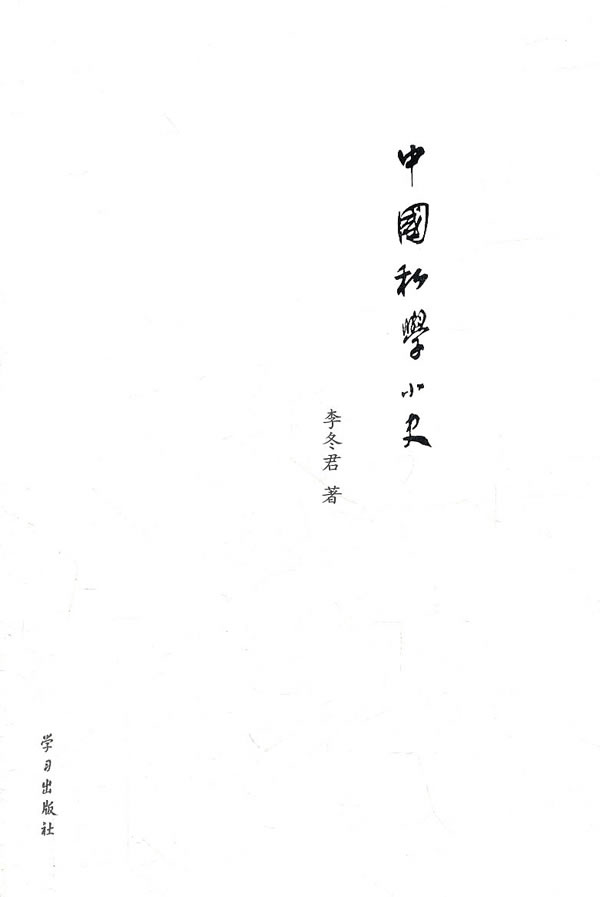 中國私學小史
李冬君 著
学习出版社